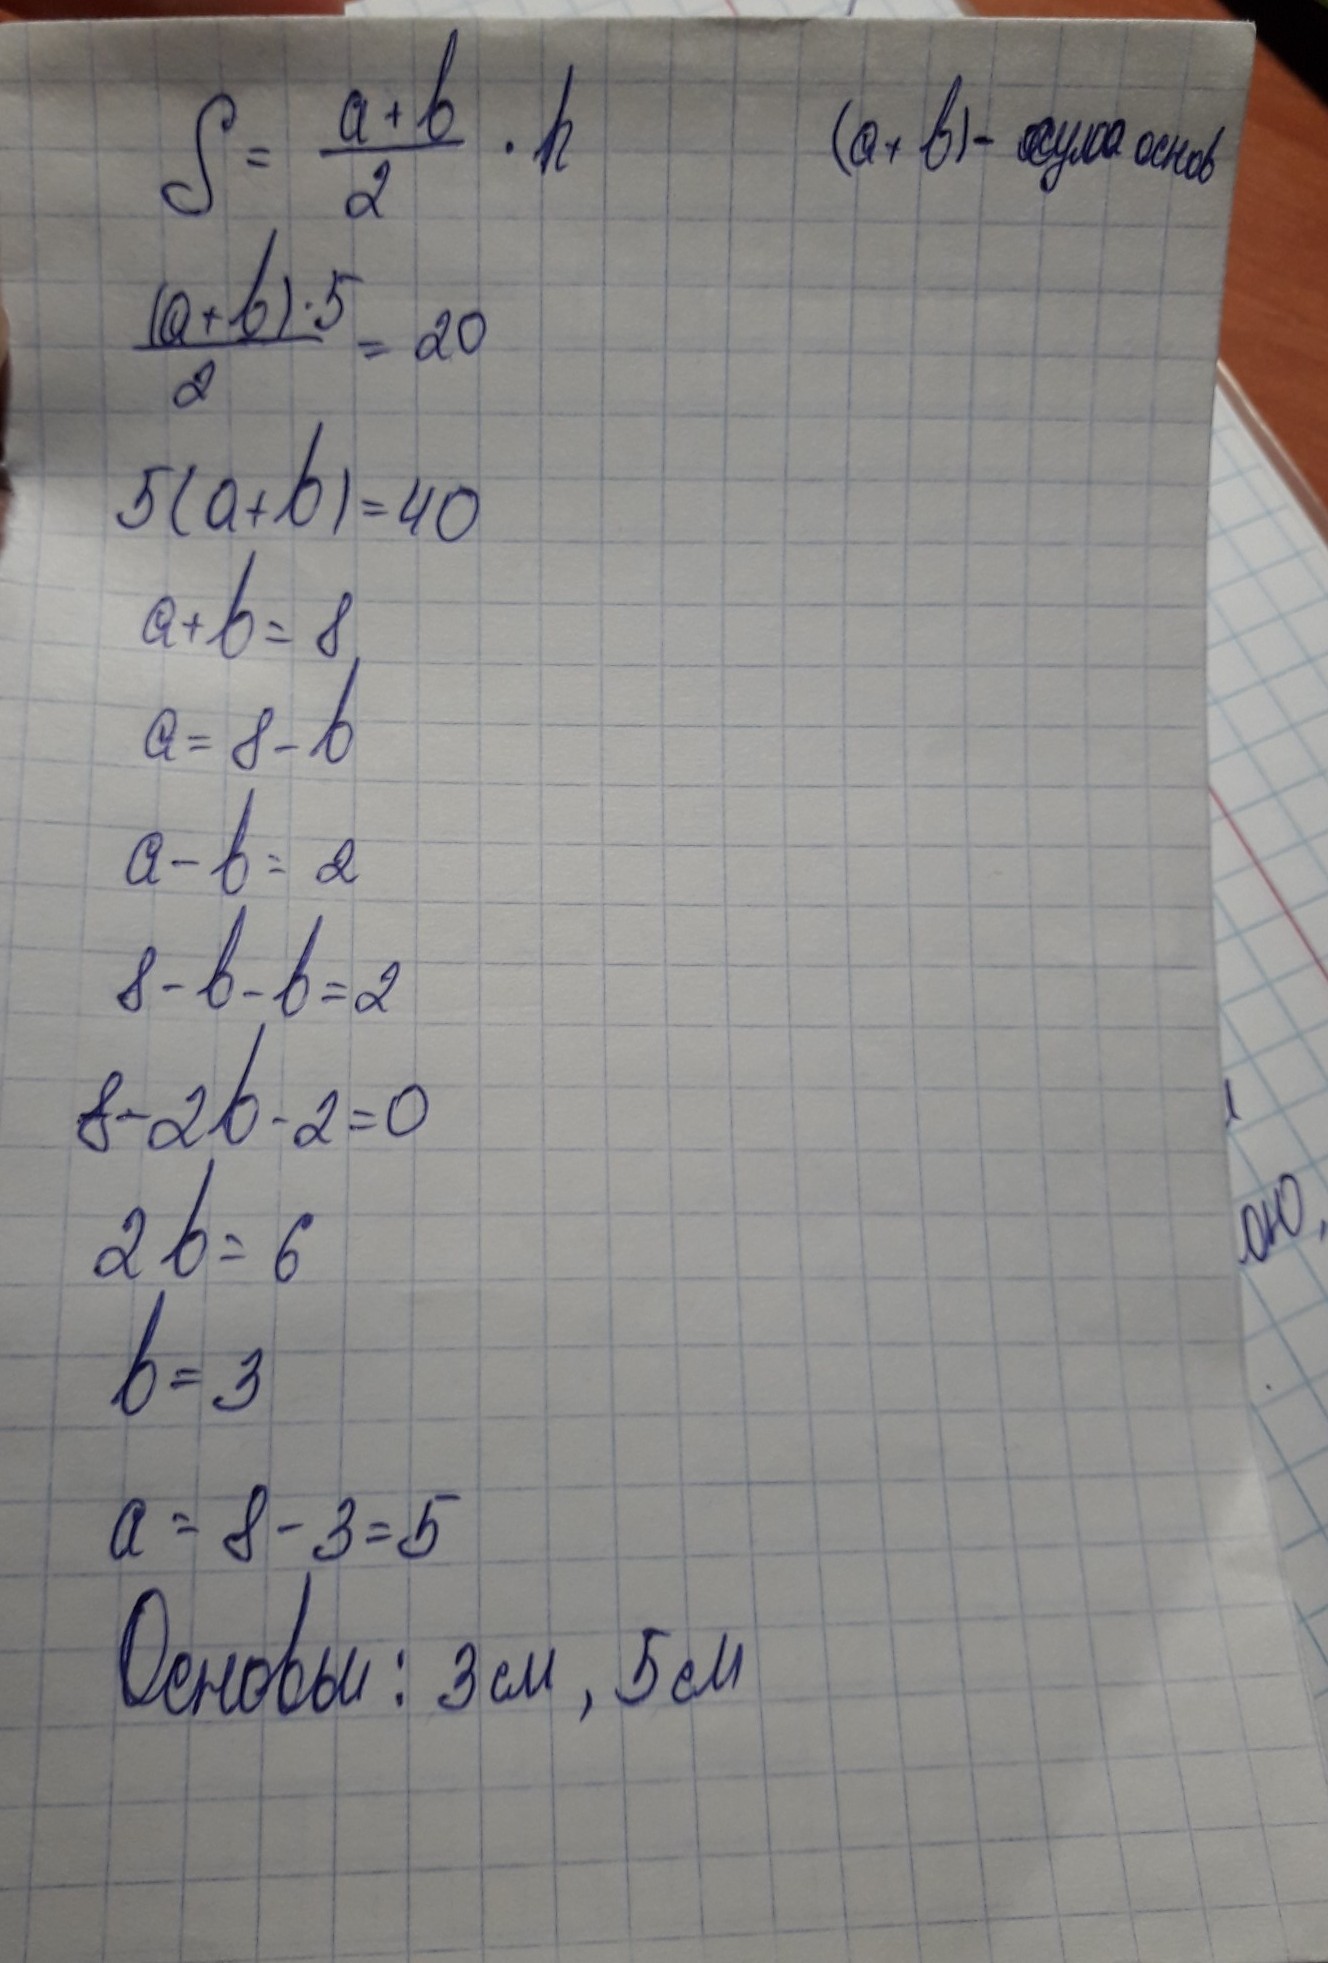 S = (a+b)/2 · h (a+b) - сума основ
(a+b)·5/2 = 20
5(a+b)=40
a+b=8
a=8-b
a-b=2
8-b-b=2
8-2b-2=0
2b=6
b=3
a=8-3=5
Основы: 3см, 5см
ою,